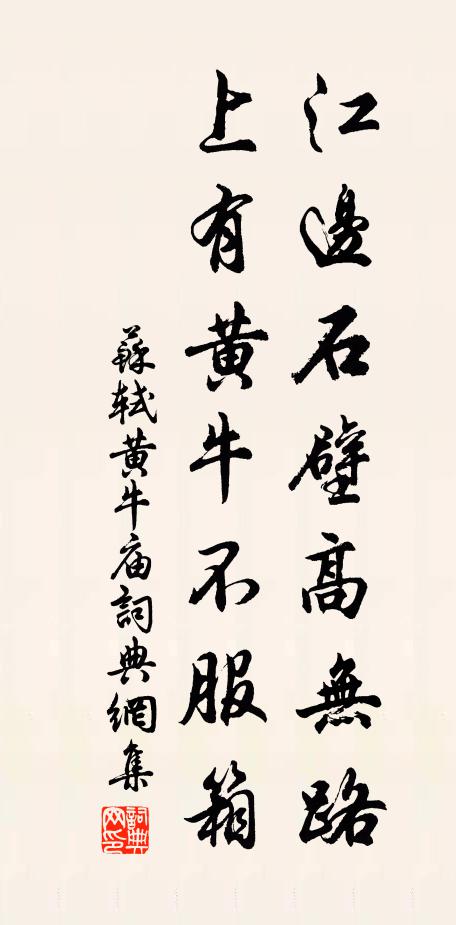 江邊石壁高無路
上有黄牛不服箱
蘇軾黄牛庙詞典網集
詞典网印